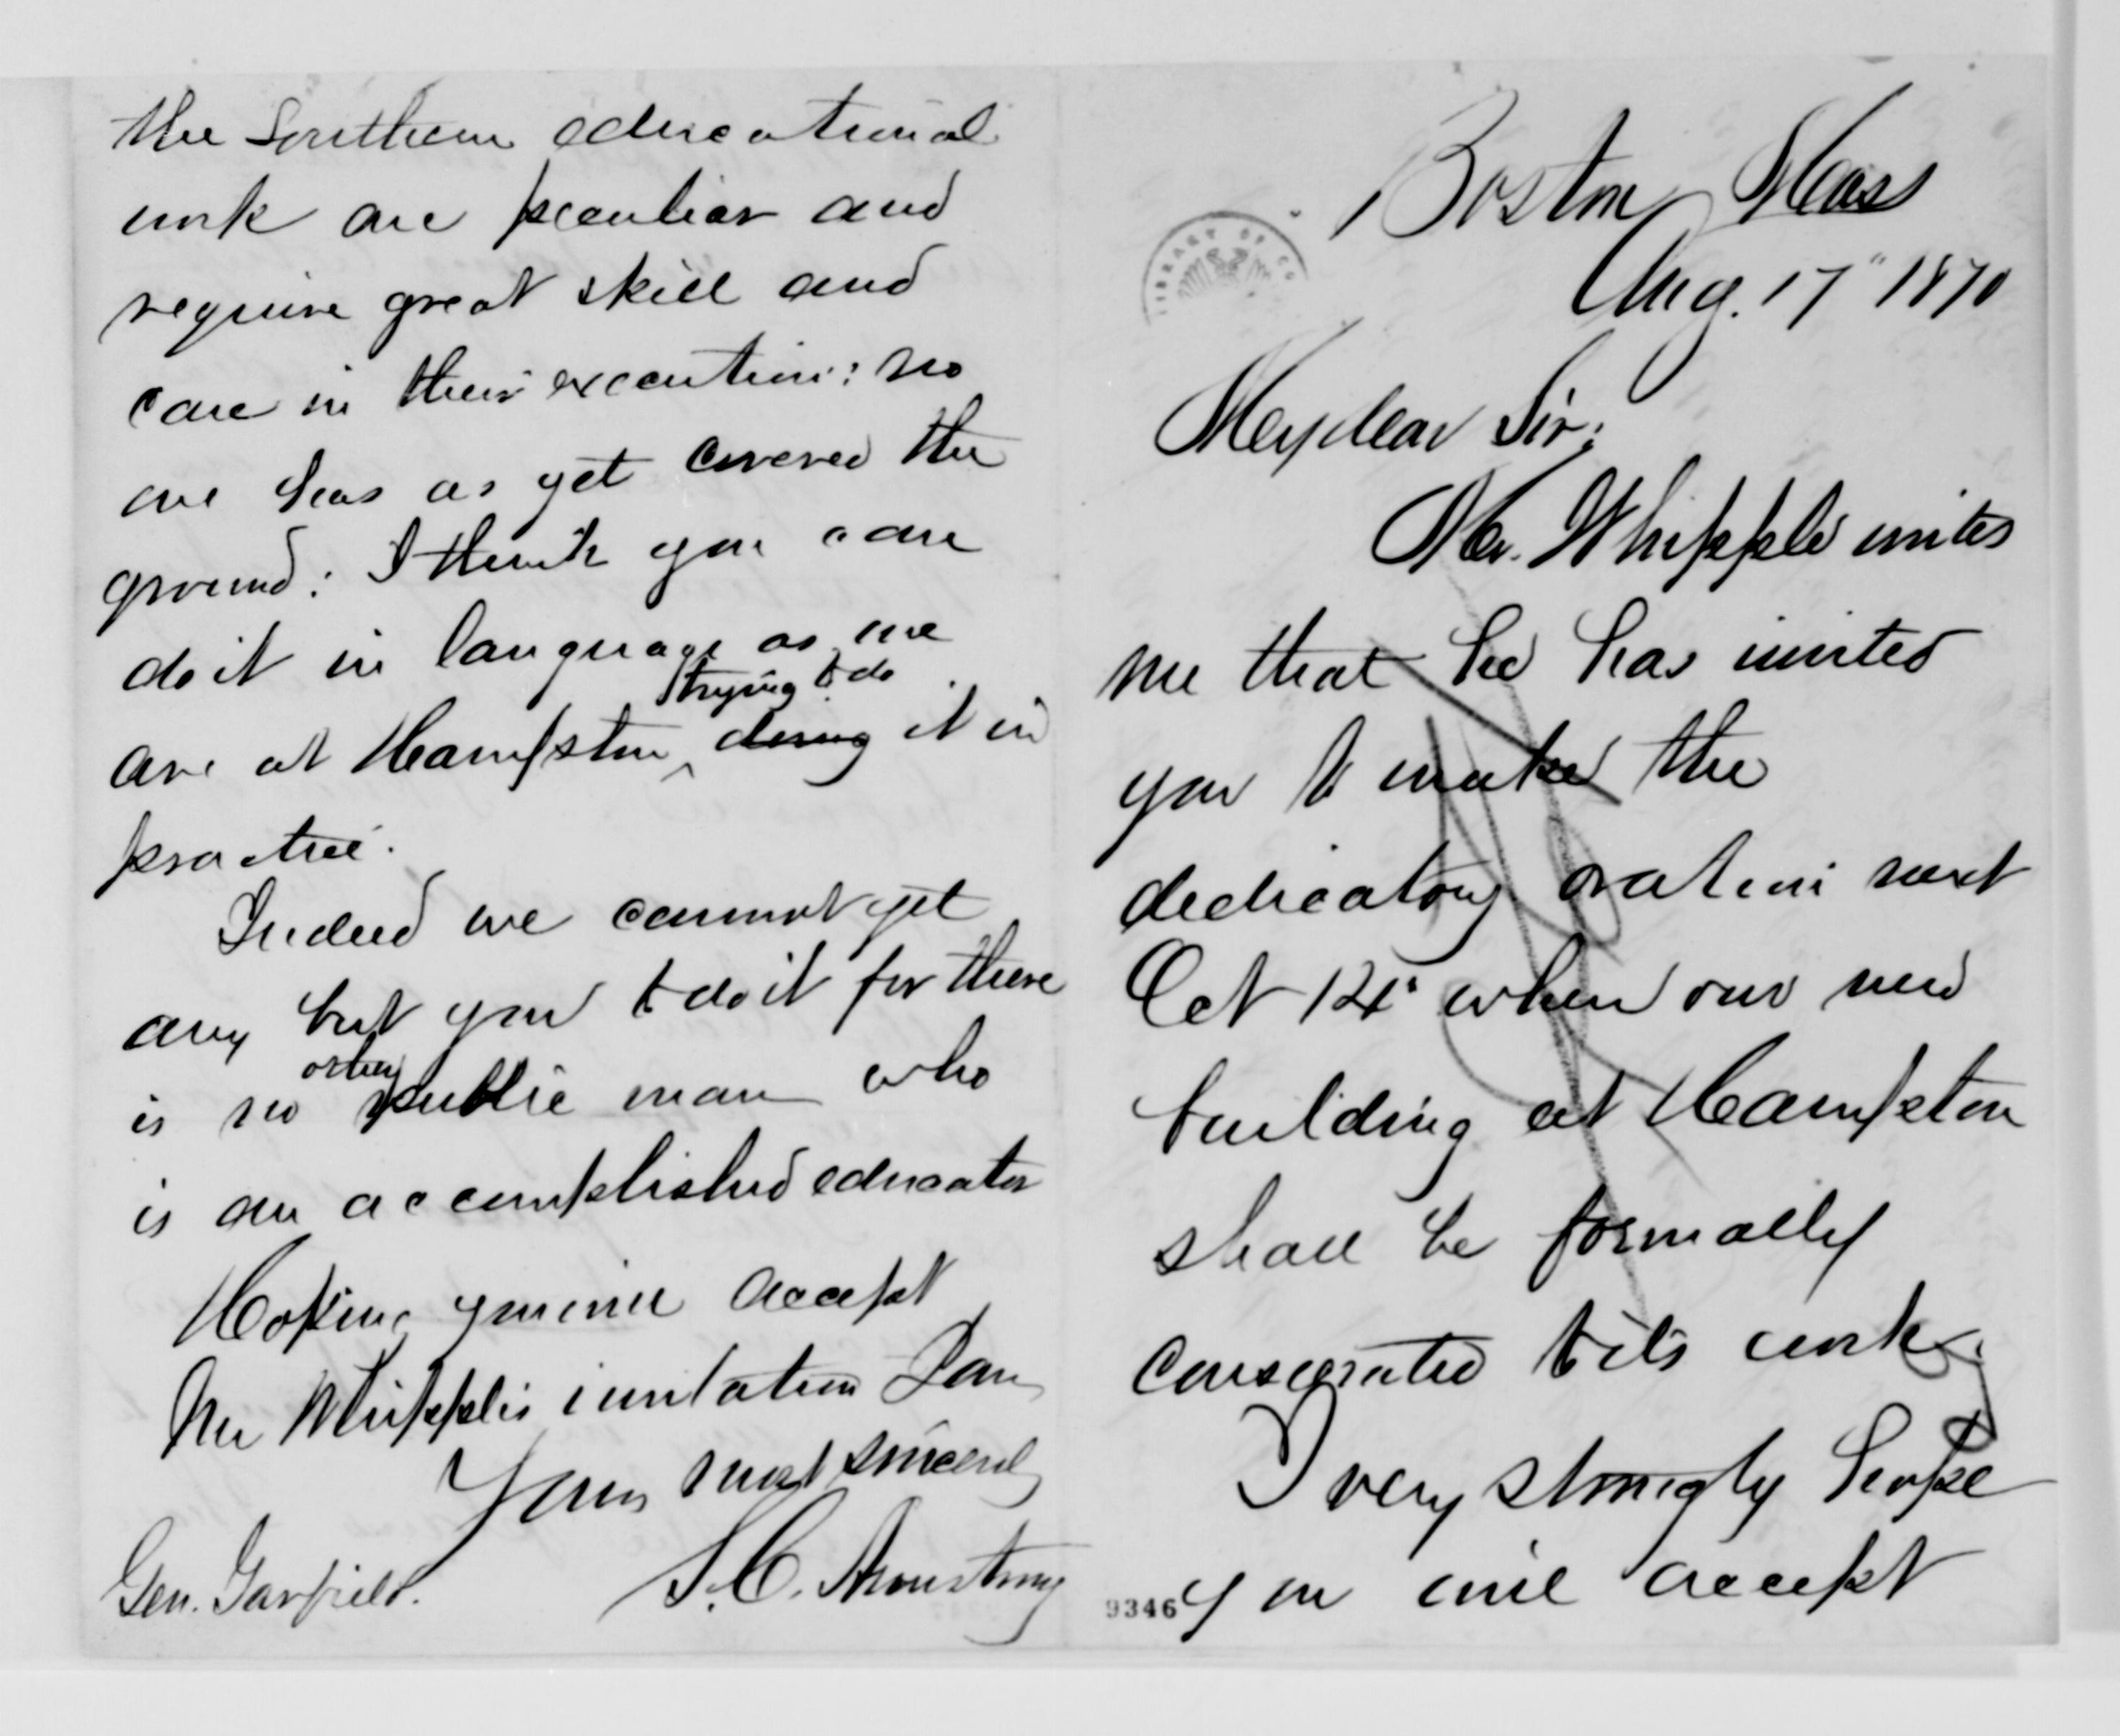 Boston, Mass
Aug. 17" 1870
My dear Sir;
Mr. Whipple writes
me that he has invited
you to make the
dedicatory oration next
Oct 12" when our new
building at Hampton
shall be formally
consecrated to its work.
I very strongly hope
you will accept
9346
LIBRARY OF CO
the Southern educational
work are peculiar and
require great skill and
care in their execution: no
one has as yet covered the
ground: I think you can
do it in language as we
trying to do
are at Hampton doing it in
practice.
Indeed we cannot get
any but you to do it for there
other
is no public man who
is an accomplished educator
Hoping you will accept
Mr Whipple's invitation I am
Yours most sincerely
S. C. Armstrong
Gen. Garfield.